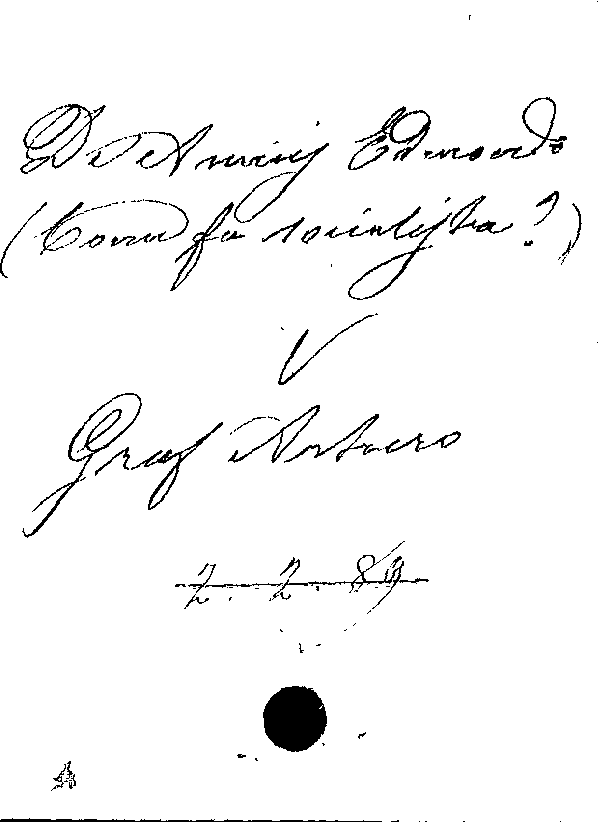 De Amicis Edmondo
(Cosa fu socialista?)
V
Graf Arturo
2. 2. 89